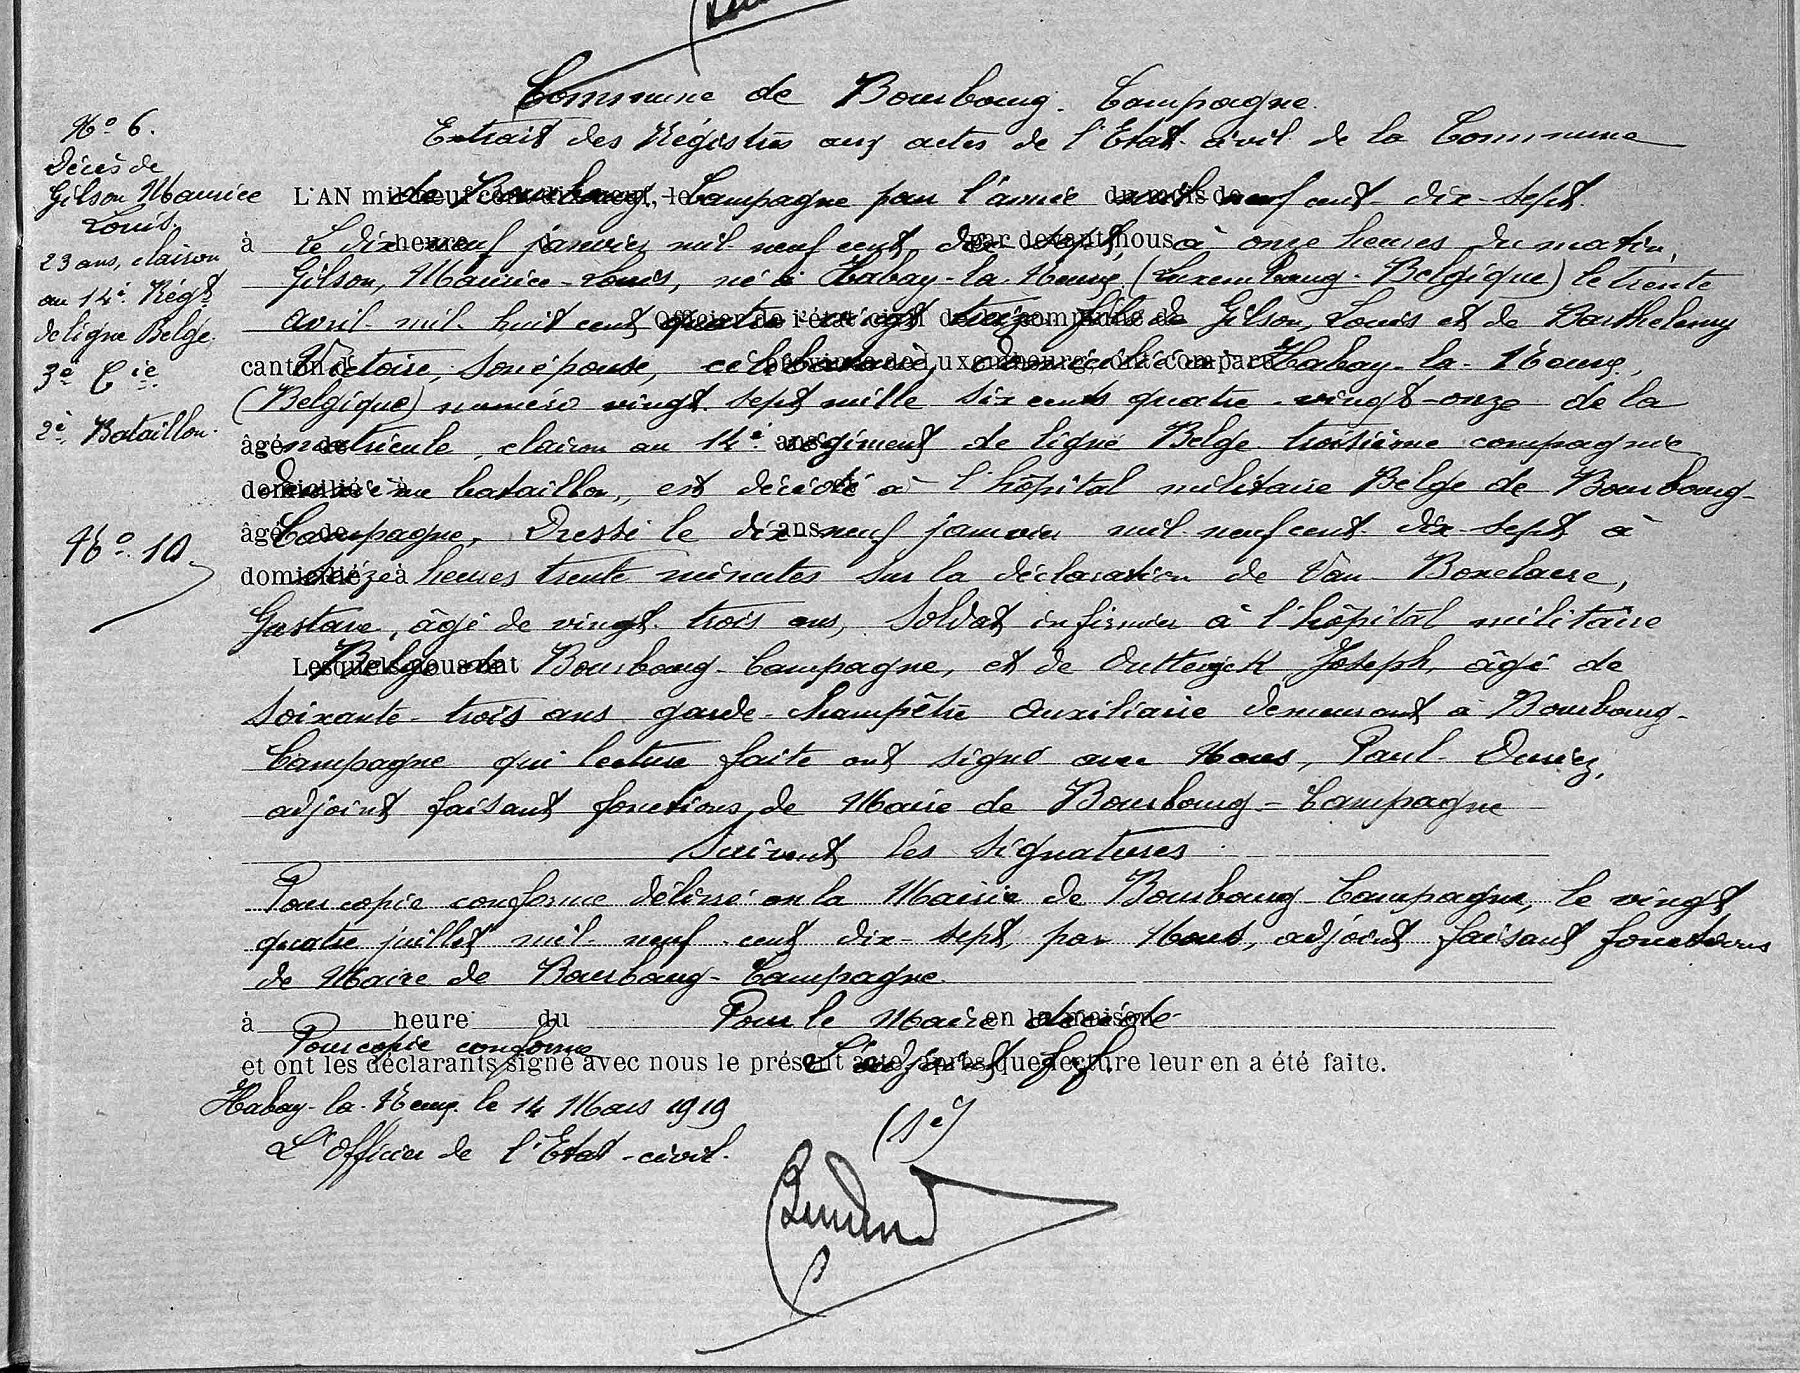 Commune de Bourbourg-Campagne.
Extrait des Régistres aux actes de l'Etat-civil de la Commune
N° 6.
Décès de
Gilson Maurice
Louis,
23 ans, clairon
au 14è Régt
de ligne Belge.
3è Cie
2è Bataillon.
N° 10
L'AN mil neuf cent dix-neuf, le du mois de
de Bourbourg Campagne pour l'année mil neuf cent dix-sept.
à heure du par devant nous
Le dix neuf janvier mil neuf cent dix-sept, à onze heures du matin,
Gilson, Maurice-Louis, né à Habay-la-Neuve, (Luxembourg-Belgique) le trente
Officier de l'état civil de la commune de
avril mil huit cent quatre vingt treize fils de Gilson, Louis et de Barthelemy
canton d province de Luxembourg, ont comparu
Victoire, son épouse, célibataire, domicilié à Habay-la-Neuve,
(Belgique) numéro vingt sept mille six cents quatre-vingt-onze de la
âgé de ans
matricule, clairon au 14è régiment de ligne Belge troisième compagnie
domicilié à
Deuxième bataillon, est décédé à l'hôpital militaire Belge de Bourbourg-
âgé de ans
Campagne. Dressé le dix neuf janvier mil neuf cent dix-sept à
domicilié à
heures trente minutes sur la déclaration de Van Boxelaere,
Gustave, âgé de vingt-trois ans, Soldat infirmier à l'hôpital militaire
Lesquels nous ont
Belge de Bourbourg-Campagne, et de Joseph, âgé de
soixante-trois ans garde-champêtre auxiliaire demeurant à Bourbourg-
Campagne qui lecture faite ont signé avec Nous, Paul
adjoint faisant fonctions de Maire de Bourbourg-Campagne
Suivent les signatures
Pour copie conforme délivré en la Mairie de Bourbourg-Campagne, le vingt
quatre juillet mil neuf cent dix-sept, par Nous, adjoint faisant fonctions
de Maire de Bourbourg-Campagne.
à heure du en la maison
Pour le Maire
Pour copie conforme
et ont les déclarants signé avec nous le présent acte, après que lecture leur en a été faite.
L'adjoint f.f.
Habay-la-Neuve le 14 Mars 1919
(sé)
L'Officier de l'Etat-civil.